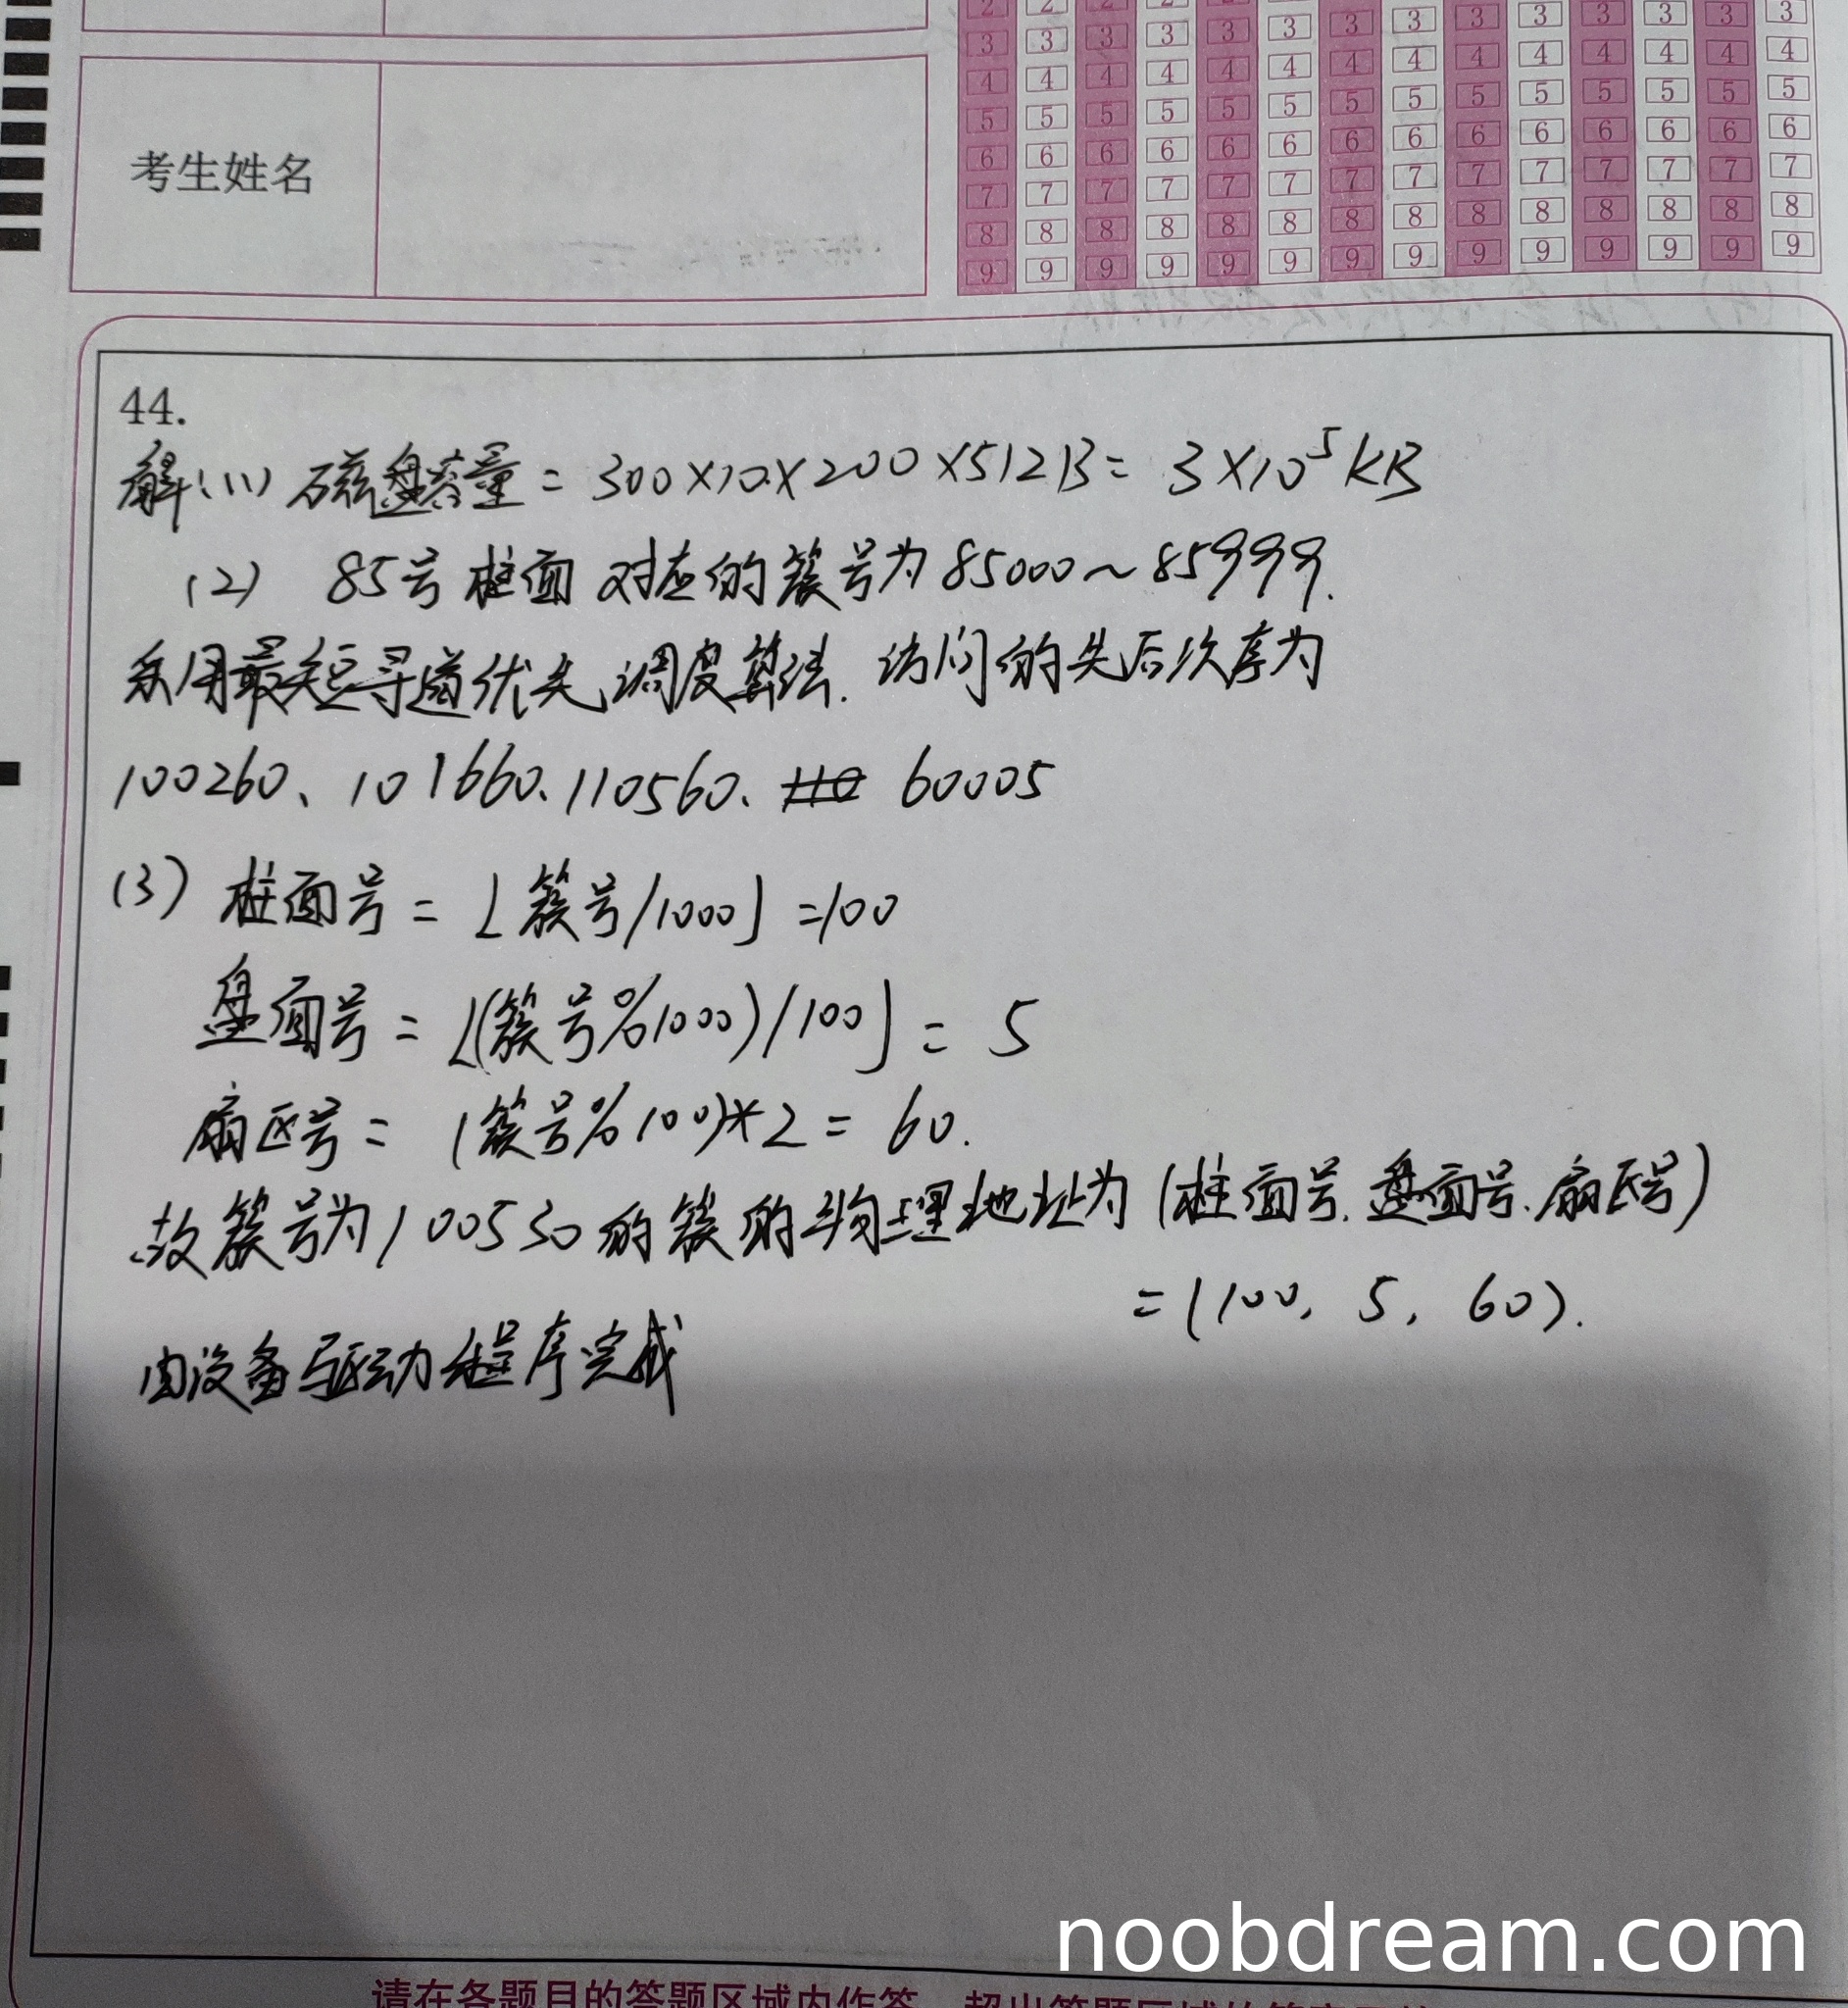 2 2 2 2 2 3 3 3 3 3 3 3 3
3 3 3 3 3 3 4 4 4 4 4 4 4 4
4 4 4 4 4 4 5 5 5 5 5 5 5 5
5 5 5 5 5 5 6 6 6 6 6 6 6 6
6 6 6 6 6 6 7 7 7 7 7 7 7 7
7 7 7 7 7 7 8 8 8 8 8 8 8 8
8 8 8 8 8 8 9 9 9 9 9 9 9 9
9 9 9 9 9 9
考生姓名
44.
解:(1) 磁盘容量 = 300×10×200×512B = 3×10⁵KB
(2) 85号柱面对应的簇号为85000~85999.
采用最短寻道优先调度算法. 访问的先后次序为
100260、101660、110560、60005
(3) 柱面号 = ⌊簇号/1000⌋ =100
盘面号 = ⌊(簇号%1000)/100⌋ = 5
扇区号 = (簇号%100)*2 = 60.
故簇号为100530的簇的物理地址为(柱面号、盘面号、扇区号)
=(100, 5, 60).
由设备驱动程序完成
noobdream.com
请在各题目的答题区域内作答